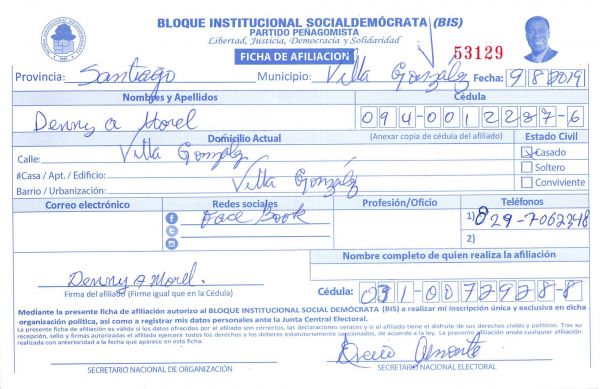 BLOQUE INSTITUCIONAL SOCIALDEMÓCRATA (BIS)
PARTIDO PEÑAGOMISTA
Libertad, Justicia, Democracia y Solidaridad
FICHA DE AFILIACION
53129
Provincia: Santiago Municipio: Villa González Fecha: 9/8/2019
Nombres y Apellidos Cédula
Denny a Morel 094-0012287-6
Domicilio Actual (Anexar copia de cédula del afiliado) Estado Civil
Calle: Villa González Casado
#Casa / Apt. / Edificio: Soltero
Barrio / Urbanización: Villa González Conviviente
Correo electrónico Redes sociales Profesión/Oficio Teléfonos
Face Book 1) 829-7062348
2)
Nombre completo de quien realiza la afiliación
Denny A Morel.
Firma del afiliado (Firme igual que en la Cédula) Cédula: 031-0072928-8
Mediante la presente ficha de afiliación autorizo al BLOQUE INSTITUCIONAL SOCIAL DEMÓCRATA (BIS) a realizar mi inscripción única y exclusiva en dicha
organización política, así como a registrar mis datos personales ante la Junta Central Electoral.
La presente ficha de afiliación es válida si los datos ofrecidos por el afiliado son correctos, las declaraciones veraces y si el afiliado tiene el disfrute de sus derechos civiles y politicos. Tras su
recepción, sello y firmas autorizadas el afiliado ejercerá todos los derechos y le deberes estatutariamente reconocidos, de acuerdo a la ley. La presente afiliación anula cualquier afiliación
realizada con anterioridad a la fecha que aparece en esta ficha.
SECRETARIO NACIONAL DE ORGANIZACIÓN SECRETARIO NACIONAL ELECTORAL